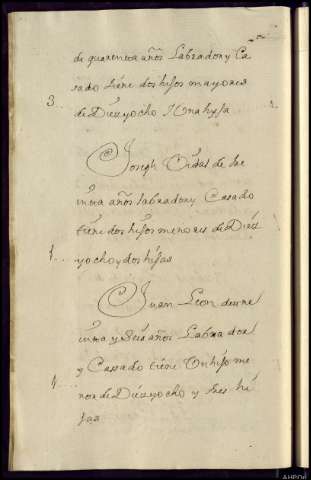 de quarenta años Labrador y Ca
sado tiene dos hijos mayores
3
de Diez y ocho i Una hija
Joseph Vidal de tre
inta años labrador y Casado
tiene dos hijos menores de Diez
4
y ocho y dos hijas
Juan Leon de tre
inta y seis años Labrador
y Cassado tiene Un hijo me
4
nor de Diez y ocho y tres hi
jas